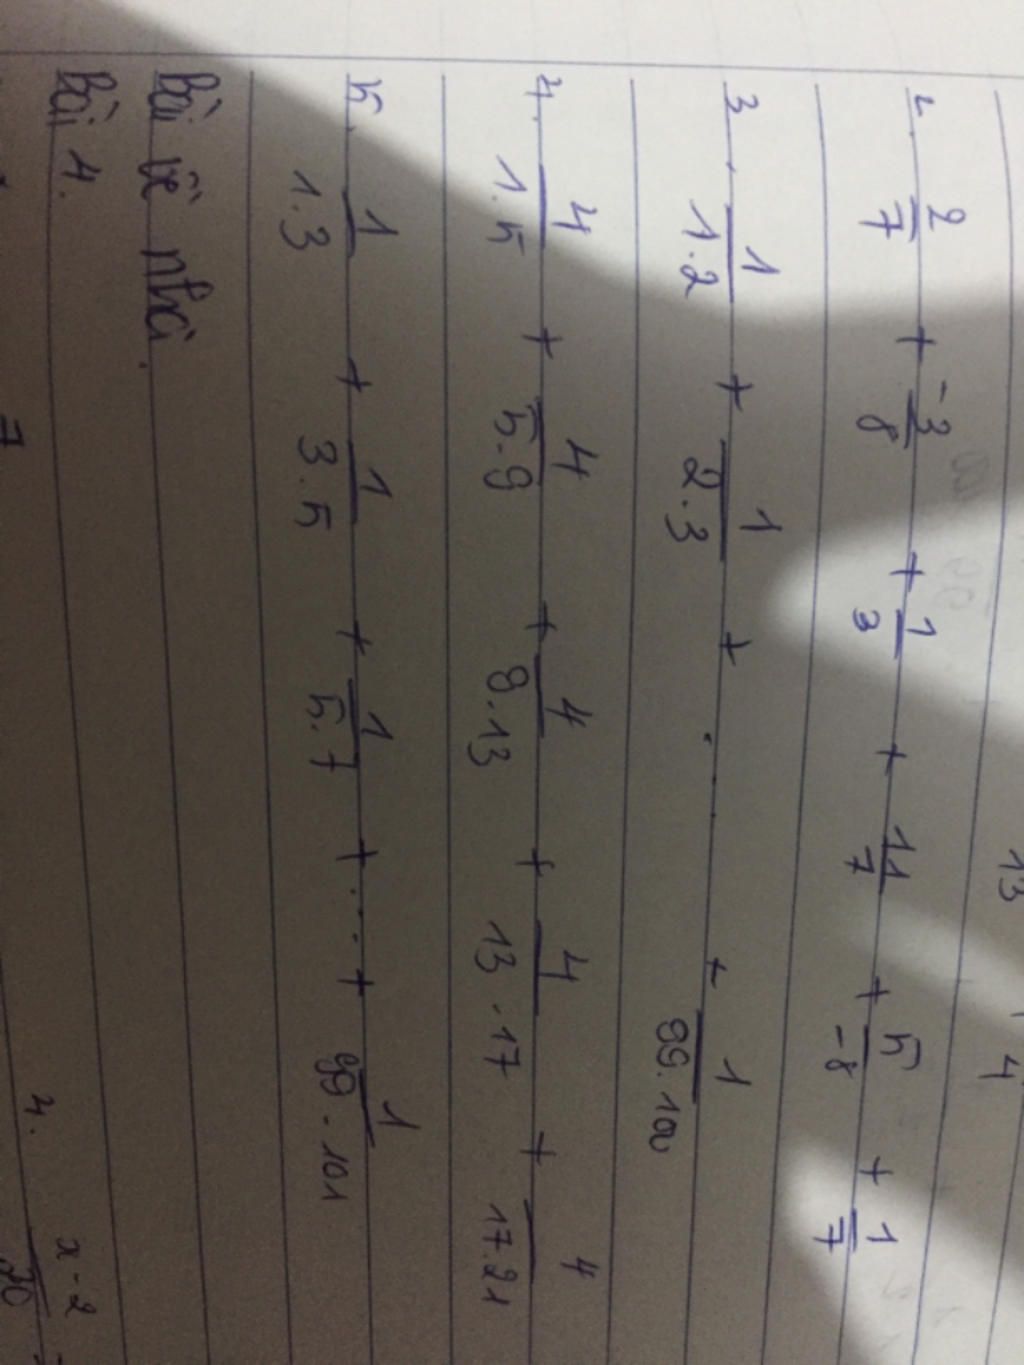 13 4
2. 2/7 + -3/8 + 1/3 + 11/7 + 5/-8 + 1/7
3. 1/1.2 + 1/2.3 + ... + 1/99.100
4. 4/1.5 + 4/5.9 + 4/9.13 + 4/13.17 + 4/17.21
5. 1/1.3 + 1/3.5 + 1/5.7 + .... + 1/99.101
Bài về nhà.
Bài 4.
4. x-2/20
7